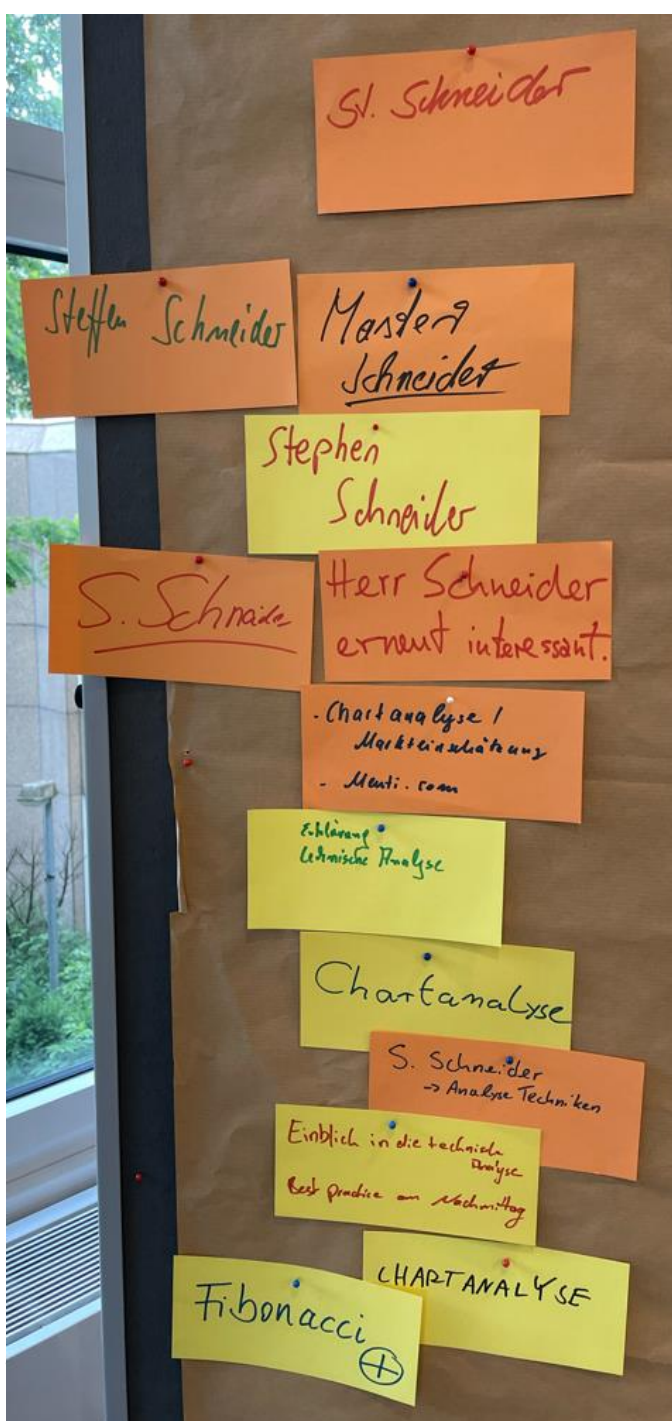 St. Schneider
Steffen Schneider
Master
Schneider
Stephen
Schneider
S. Schneider
Herr Schneider
erneut interessant.
- Chartanalyse /
Markteinschätzung
- Menti.com
Erklärung
technische Analyse
Chartanalyse
S. Schneider
→ Analyse Techniken
Einblick in die technische
Analyse
Best practice am Nachmittag
CHARTANALYSE
Fibonacci
+